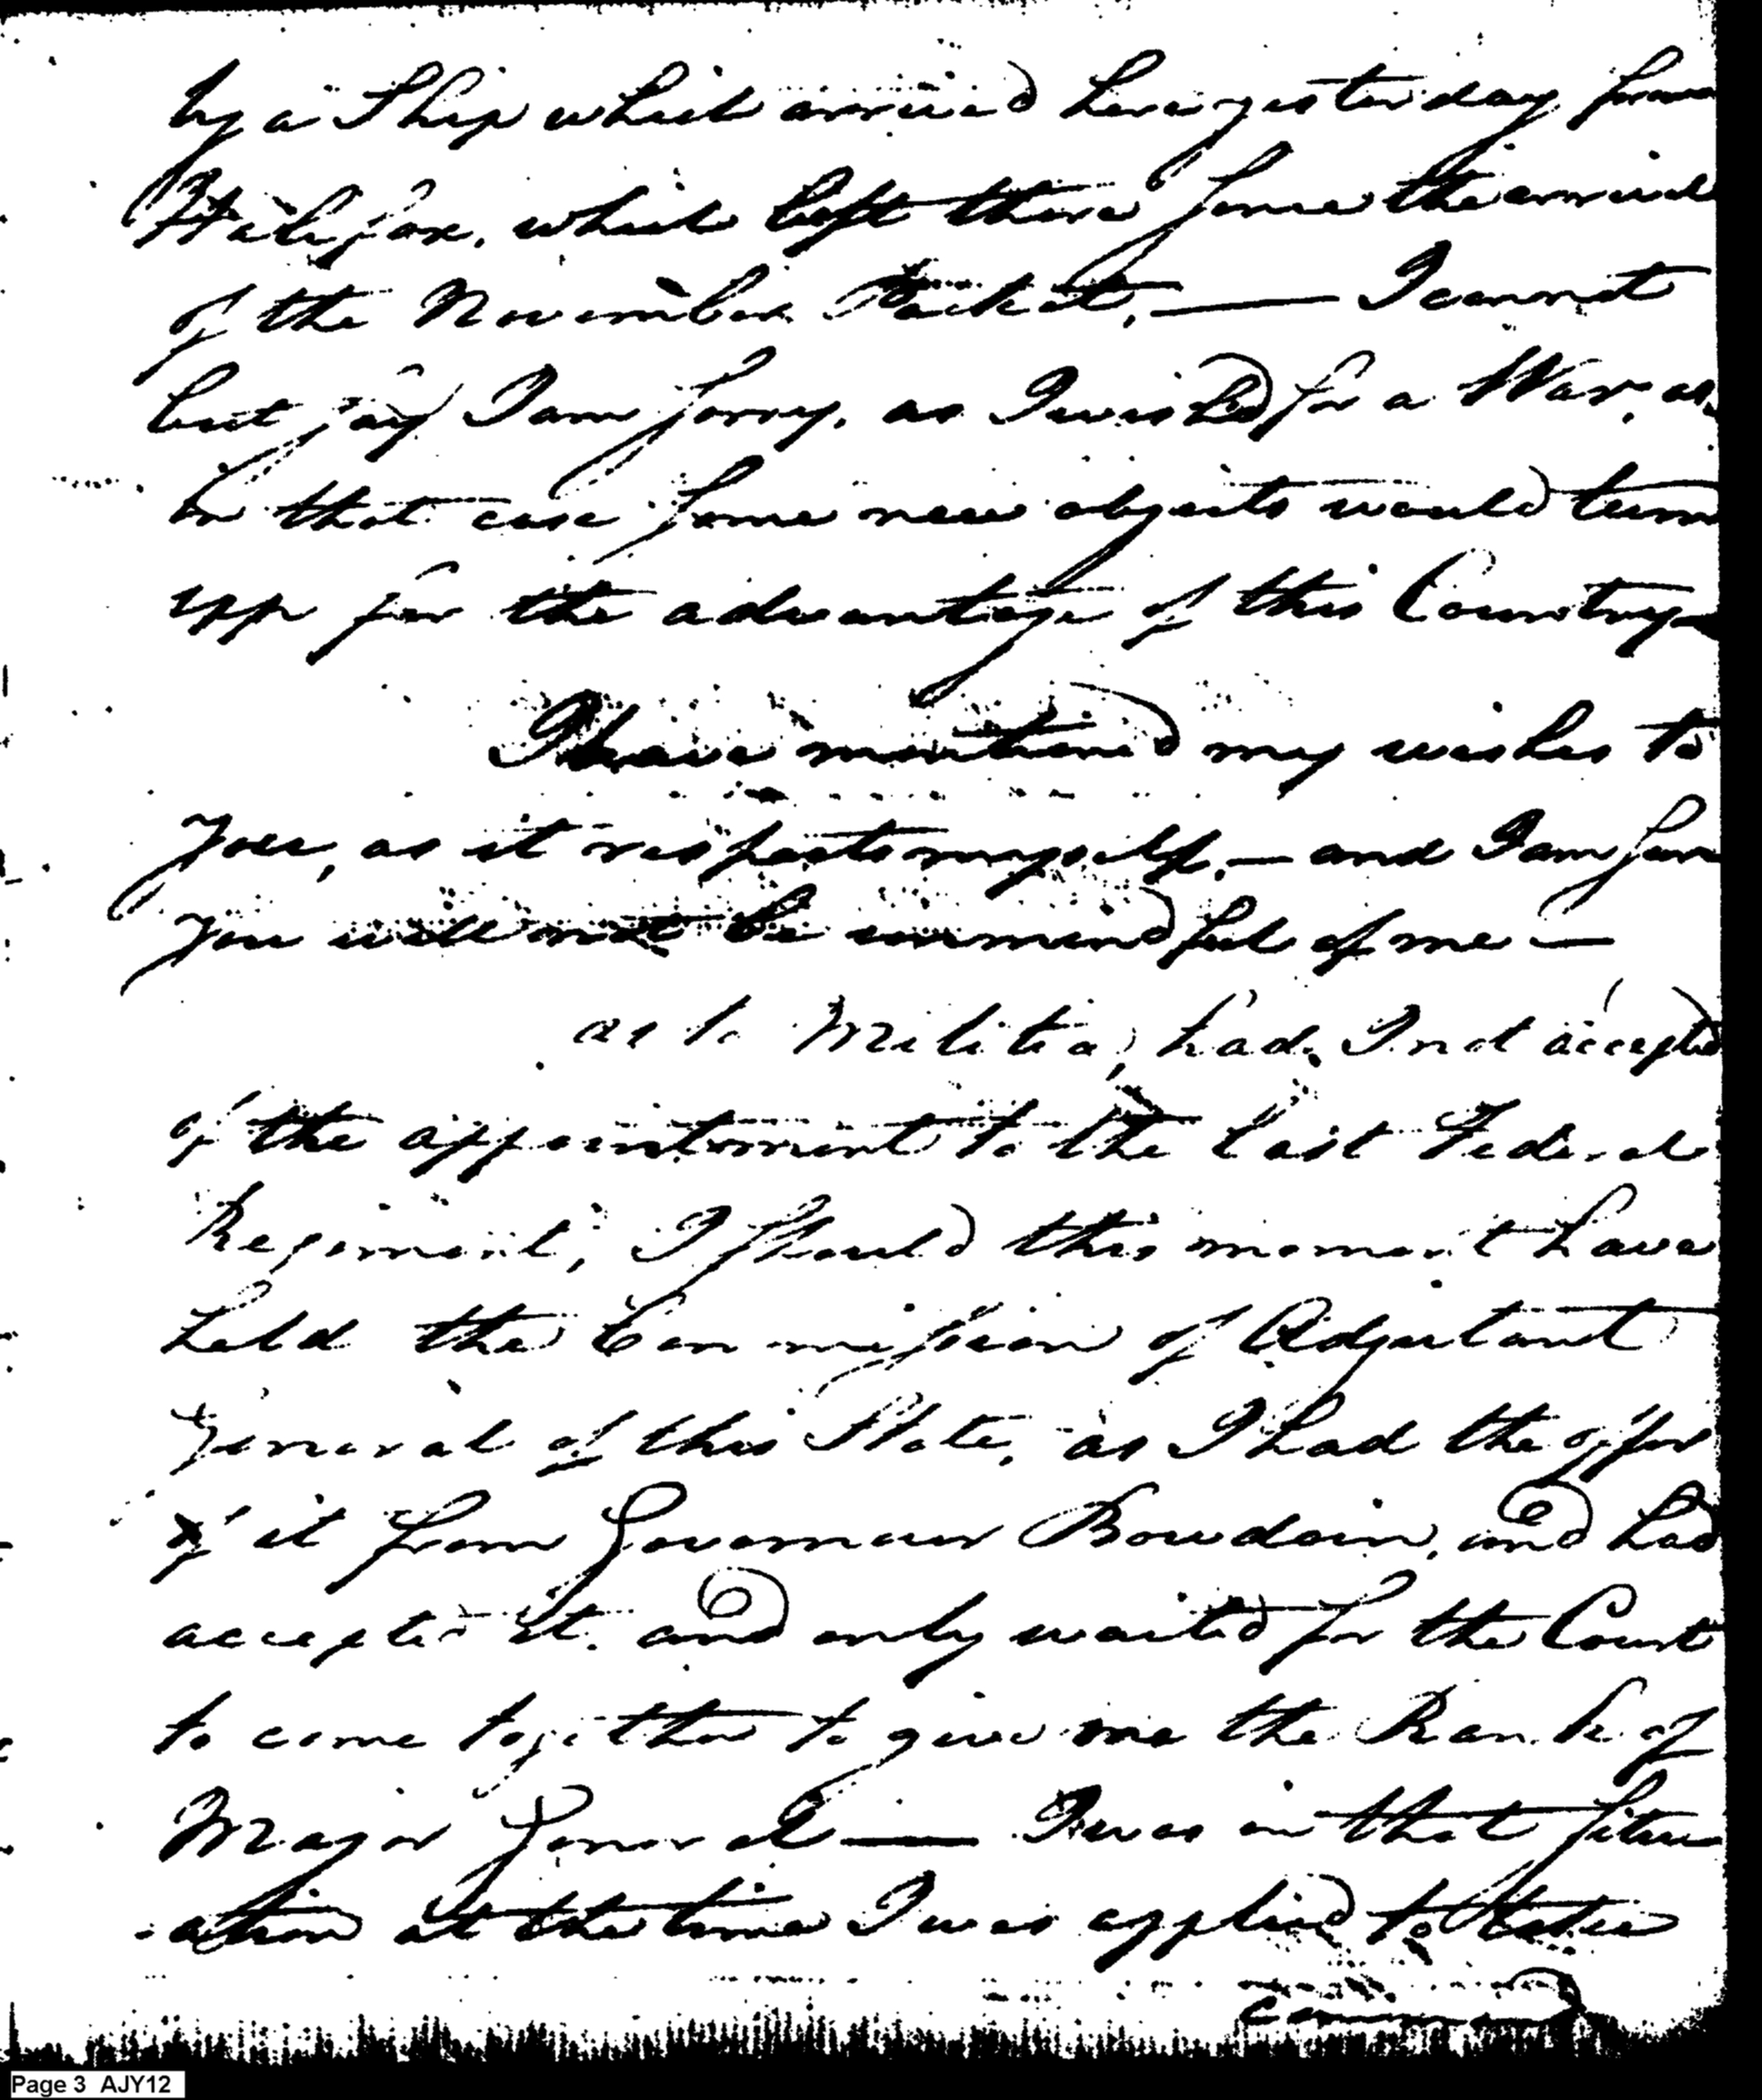 by a Ship which arrived here yesterday from
Hallifax, which left there since the arrival
of the November Packet, — I cannot
but say I am sorry, as I wished for a War, as
in that case some new objects would turn
up for the advantage of this Country —
I have mentioned my wishes to
you, as it respects myself, — and I am sure
you will not be unmindful of me —
as to Militia, had I not accepted
of the appointment to the last Federal
Regiment, I should this moment have
held the Commission of Adjutant
General of this State, as I had the offer
of it from Governour Bowdoin, and had
accepted it. and only waited for the Court
to come together to give me the Rank of
Major General — I was in that situ
-ation at the time I was applied to
command
Page 3 AJY12